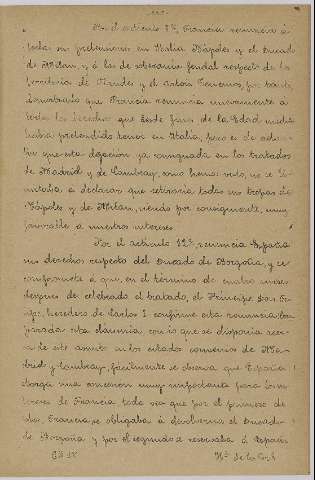 Por el artículo 1º, Francia renuncia á
todas sus pretensiones en Italia, Nápoles y el Ducado
de Milan, y á las de soberanía feudal respecto de los
territorios de Flandes y el Artois. Tenemos, por tanto,
demostrado que Francia renuncia nuevamente á
todos los derechos que desde fines de la Edad media
había pretendido tener en Italia, pero es de
que esta dejación ya consignada en los tratados
de Madrid y de Cambray, como hemos visto, no se
á declarar que retiraría todas sus tropas de
Nápoles y de Milan, siendo por consiguiente, muy
favorable á nuestros intereses.
Por el artículo 12º renuncia España
sus derechos respecto del Ducado de Borgoña, y se
compromete á que, en el término de cuatro meses
despues de celebrado el tratado, el Príncipe Don Fe-
lipe, heredero de Carlos I confirme esta renuncia. Com-
parada esta cláusula con lo que se disponía acer-
ca de este asunto en los citados convenios de Ma-
drid y Cambray, fácilmente se observa que España
otorga una concesion muy importante para los in-
tereses de Francia, toda vez que por el primero de
ellos, Francia se obligaba á devolvernos el Ducado
de Borgoña y por el segundo se reservaba á España